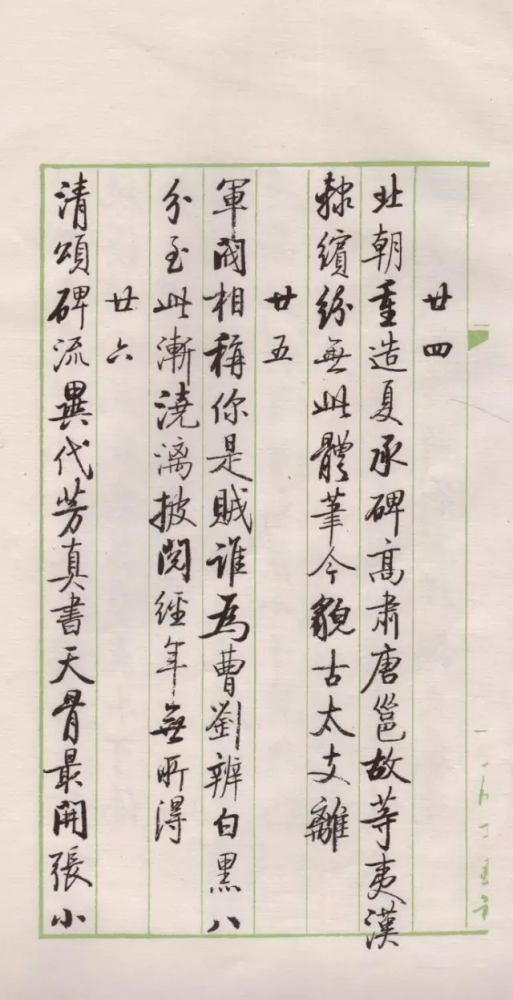 廿四
北朝重造夏承碑高肅唐邕故等夷漢
隸繽紛無此體筆今貌古太支離
廿五
軍閥相稱你是賊誰為曹劉辨白黑八
分至此漸澆漓披閱經年無所得
廿六
清頌碑流異代芳真書天骨最開張小